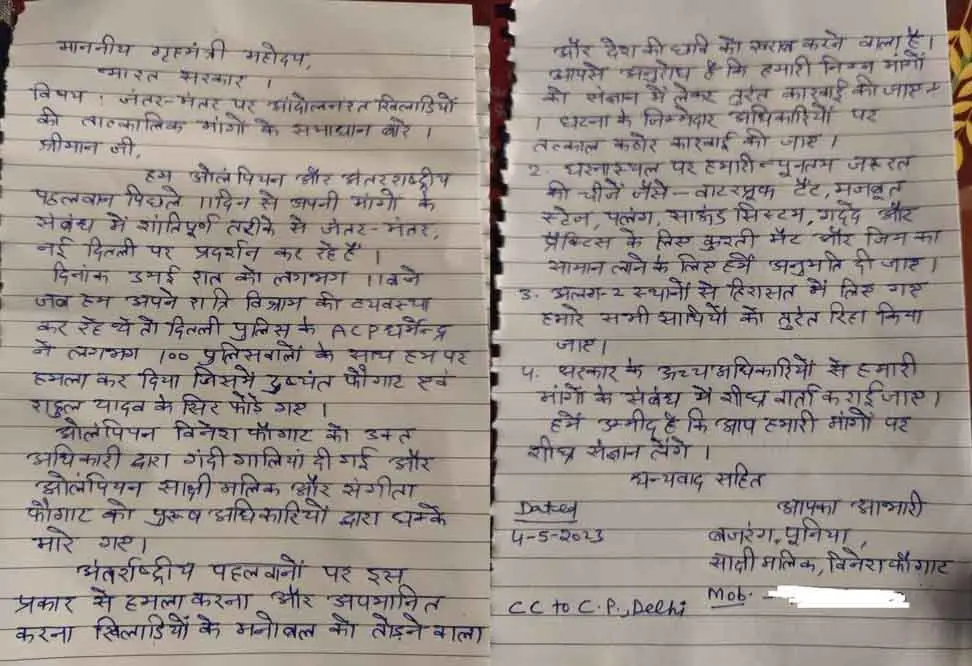 माननीय गृहमंत्री महोदय,
भारत सरकार ।
विषय : जंतर-मंतर पर आंदोलनरत खिलाडियों
की तात्कालिक मांगों के समाधान बारे ।
श्रीमान जी,
हम ओलंपियन और अंतरराष्ट्रीय
पहलवान पिछले 11 दिन से अपनी मांगों के
संबंध में शांतिपूर्ण तरीके से जंतर-मंतर,
नई दिल्ली पर प्रदर्शन कर रहे हैं ।
दिनांक 3 मई रात को लगभग 11 बजे
जब हम अपने रात्रि विश्राम की व्यवस्था
कर रहे थे तो दिल्ली पुलिस के ACP धर्मेन्द्र
ने लगभग 100 पुलिसवालों के साथ हम पर
हमला कर दिया जिसमें दुष्यंत फौगाट एवं
राहुल यादव के सिर फोडे गए ।
ओलंपियन विनेश फौगाट को उक्त
अधिकारी द्वारा गंदी गालियां दी गई और
ओलंपियन साक्षी मलिक और संगीता
फौगाट को पुरुष अधिकारियों द्वारा धक्के
मारे गए ।
अंतर्राष्ट्रीय पहलवानों पर इस
प्रकार से हमला करना और अपमानित
करना खिलाडियों के मनोबल को तोडने वाला
और देश की छवि को खराब करने वाला है ।
आपसे अनुरोध है कि हमारी निम्न मांगों
को संज्ञान में लेकर तुरंत कारवाई की जाए -
1 घटना के जिम्मेदार अधिकारियों पर
तत्काल कठोर कारवाई की जाए ।
2. धरनास्थल पर हमारी न्यूनतम जरूरत
की चीजें जैसे - वाटरप्रूफ टैंट, मजबूत
स्टेज, पलंग, साऊंड सिस्टम, गद्दे और
प्रैक्टिस के लिए कुश्ती मैट और जिम का
सामान लाने के लिए हमें अनुमति दी जाए ।
3. अलग-2 स्थानों से हिरासत में लिए गए
हमारे सभी साथियों को तुरंत रिहा किया
जाए ।
4. सरकार के उच्च अधिकारियों से हमारी
मांगों के संबंध में शीघ्र वार्ता कराई जाए ।
हमें उम्मीद है कि आप हमारी मांगों पर
शीघ्र संज्ञान लेंगे ।
धन्यवाद सहित
Dated आपका आभारी
4-5-2023 बजरंग पूनिया,
साक्षी मलिक, विनेश फौगाट
Mob.
CC to C.P., Delhi